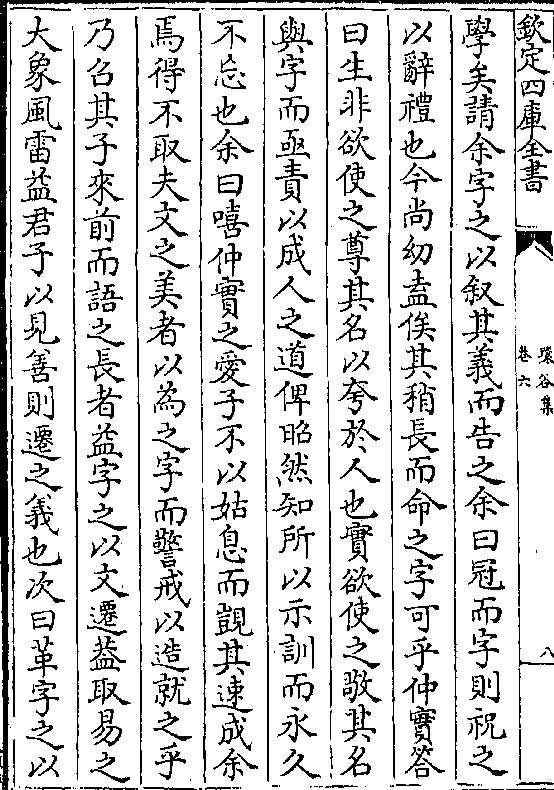 欽定四庫全書
瓌谷集
卷六
八
學矣請余字之以叙其義而告之余曰冠而字則祝之
以辭禮也今尚幼盍俟其稍長而命之字可乎仲實答
曰生非欲使之尊其名以夸於人也實欲使之敬其名
與字而亟責以成人之道俾昭然知所以示訓而永久
不忘也余曰嘻仲實之愛子不以姑息而覬其速成余
焉得不取夫文之美者以為之字而警戒以造就之乎
乃召其子來前而語之長者益字之以文遷葢取易之
大象風雷益君子以見善則遷之義也次曰革字之以